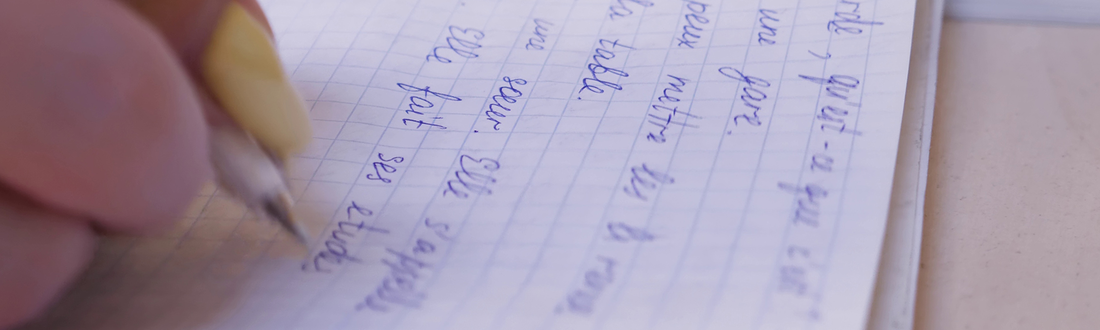 rde, qu'est-ce que c'est
une gare.
peux mettre les
la table.
une sœur. Elle s'appelle
. Elle fait ses etude